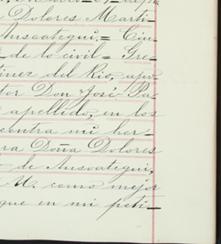 Dolores Marti-
Ansoategui, = Ciu-
de lo civil = Gre-
tinez del Rio, apo-
tor Don José Pa-
apellido, en los
contra mi her-
ra Doña Dolores
de Ansoategui,
U. como mejor
que en mi peti-